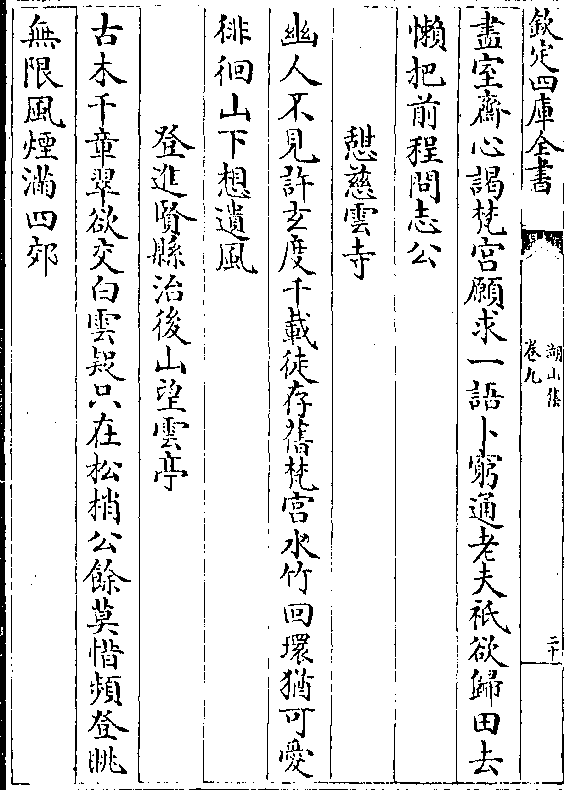 欽定四庫全書
湖山集
卷九
二十
盡室齋心謁梵宫願求一語卜窮通老夫祇欲歸田去
懶把前程問志公
憇慈雲寺
幽人不見許玄度千載徒存舊梵宫水竹回環猶可愛
徘徊山下想遺風
登進賢縣治後山望雲亭
古木千章翠欲交白雲疑只在松梢公餘莫惜頻登眺
無限風煙滿四郊